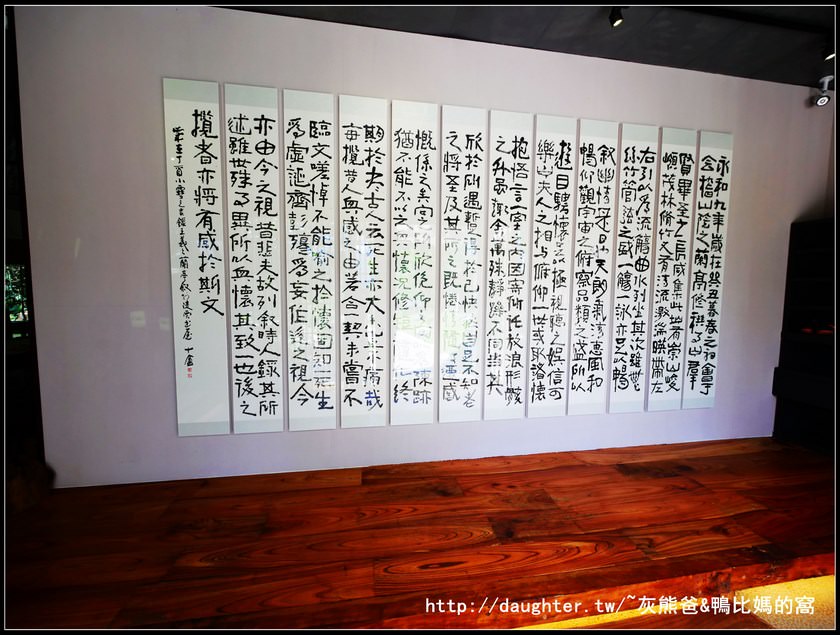 永和九年歲在癸丑暮春之初會于
會稽山陰之蘭亭脩稧事也群
賢畢至少長咸集此地有崇山峻
嶺茂林脩竹又有清流激湍暎帶左
右引以為流觴曲水列坐其次雖無
絲竹管弦之盛一觴一詠亦足以暢
敘幽情是日也天朗氣清惠風和
暢仰觀宇宙之大俯察品類之盛所以
遊目騁懷足以極視聽之娛信可
樂也夫人之相與俯仰一世或取諸懷
抱悟言一室之內因寄所託放浪形骸
之外雖趣舍萬殊靜躁不同當其
欣於所遇暫得於己快然自足不知老
之將至及其所之既惓情隨事遷感
慨係之矣向之所欣俛仰之間以為陳跡
猶不能不以之興懷況修短隨化終
期於盡古人云死生亦大矣豈不痛哉
每攬昔人興感之由若合一契未嘗不
臨文嗟悼不能喻之於懷固知一死生
為虛誕齊彭殤為妄作後之視今
亦由今之視昔悲夫故列敘時人錄其所
述雖世殊事異所以興懷其致一也後之
攬者亦將有感於斯文
http://daughter.tw/~灰熊爸&鴨比媽的窩